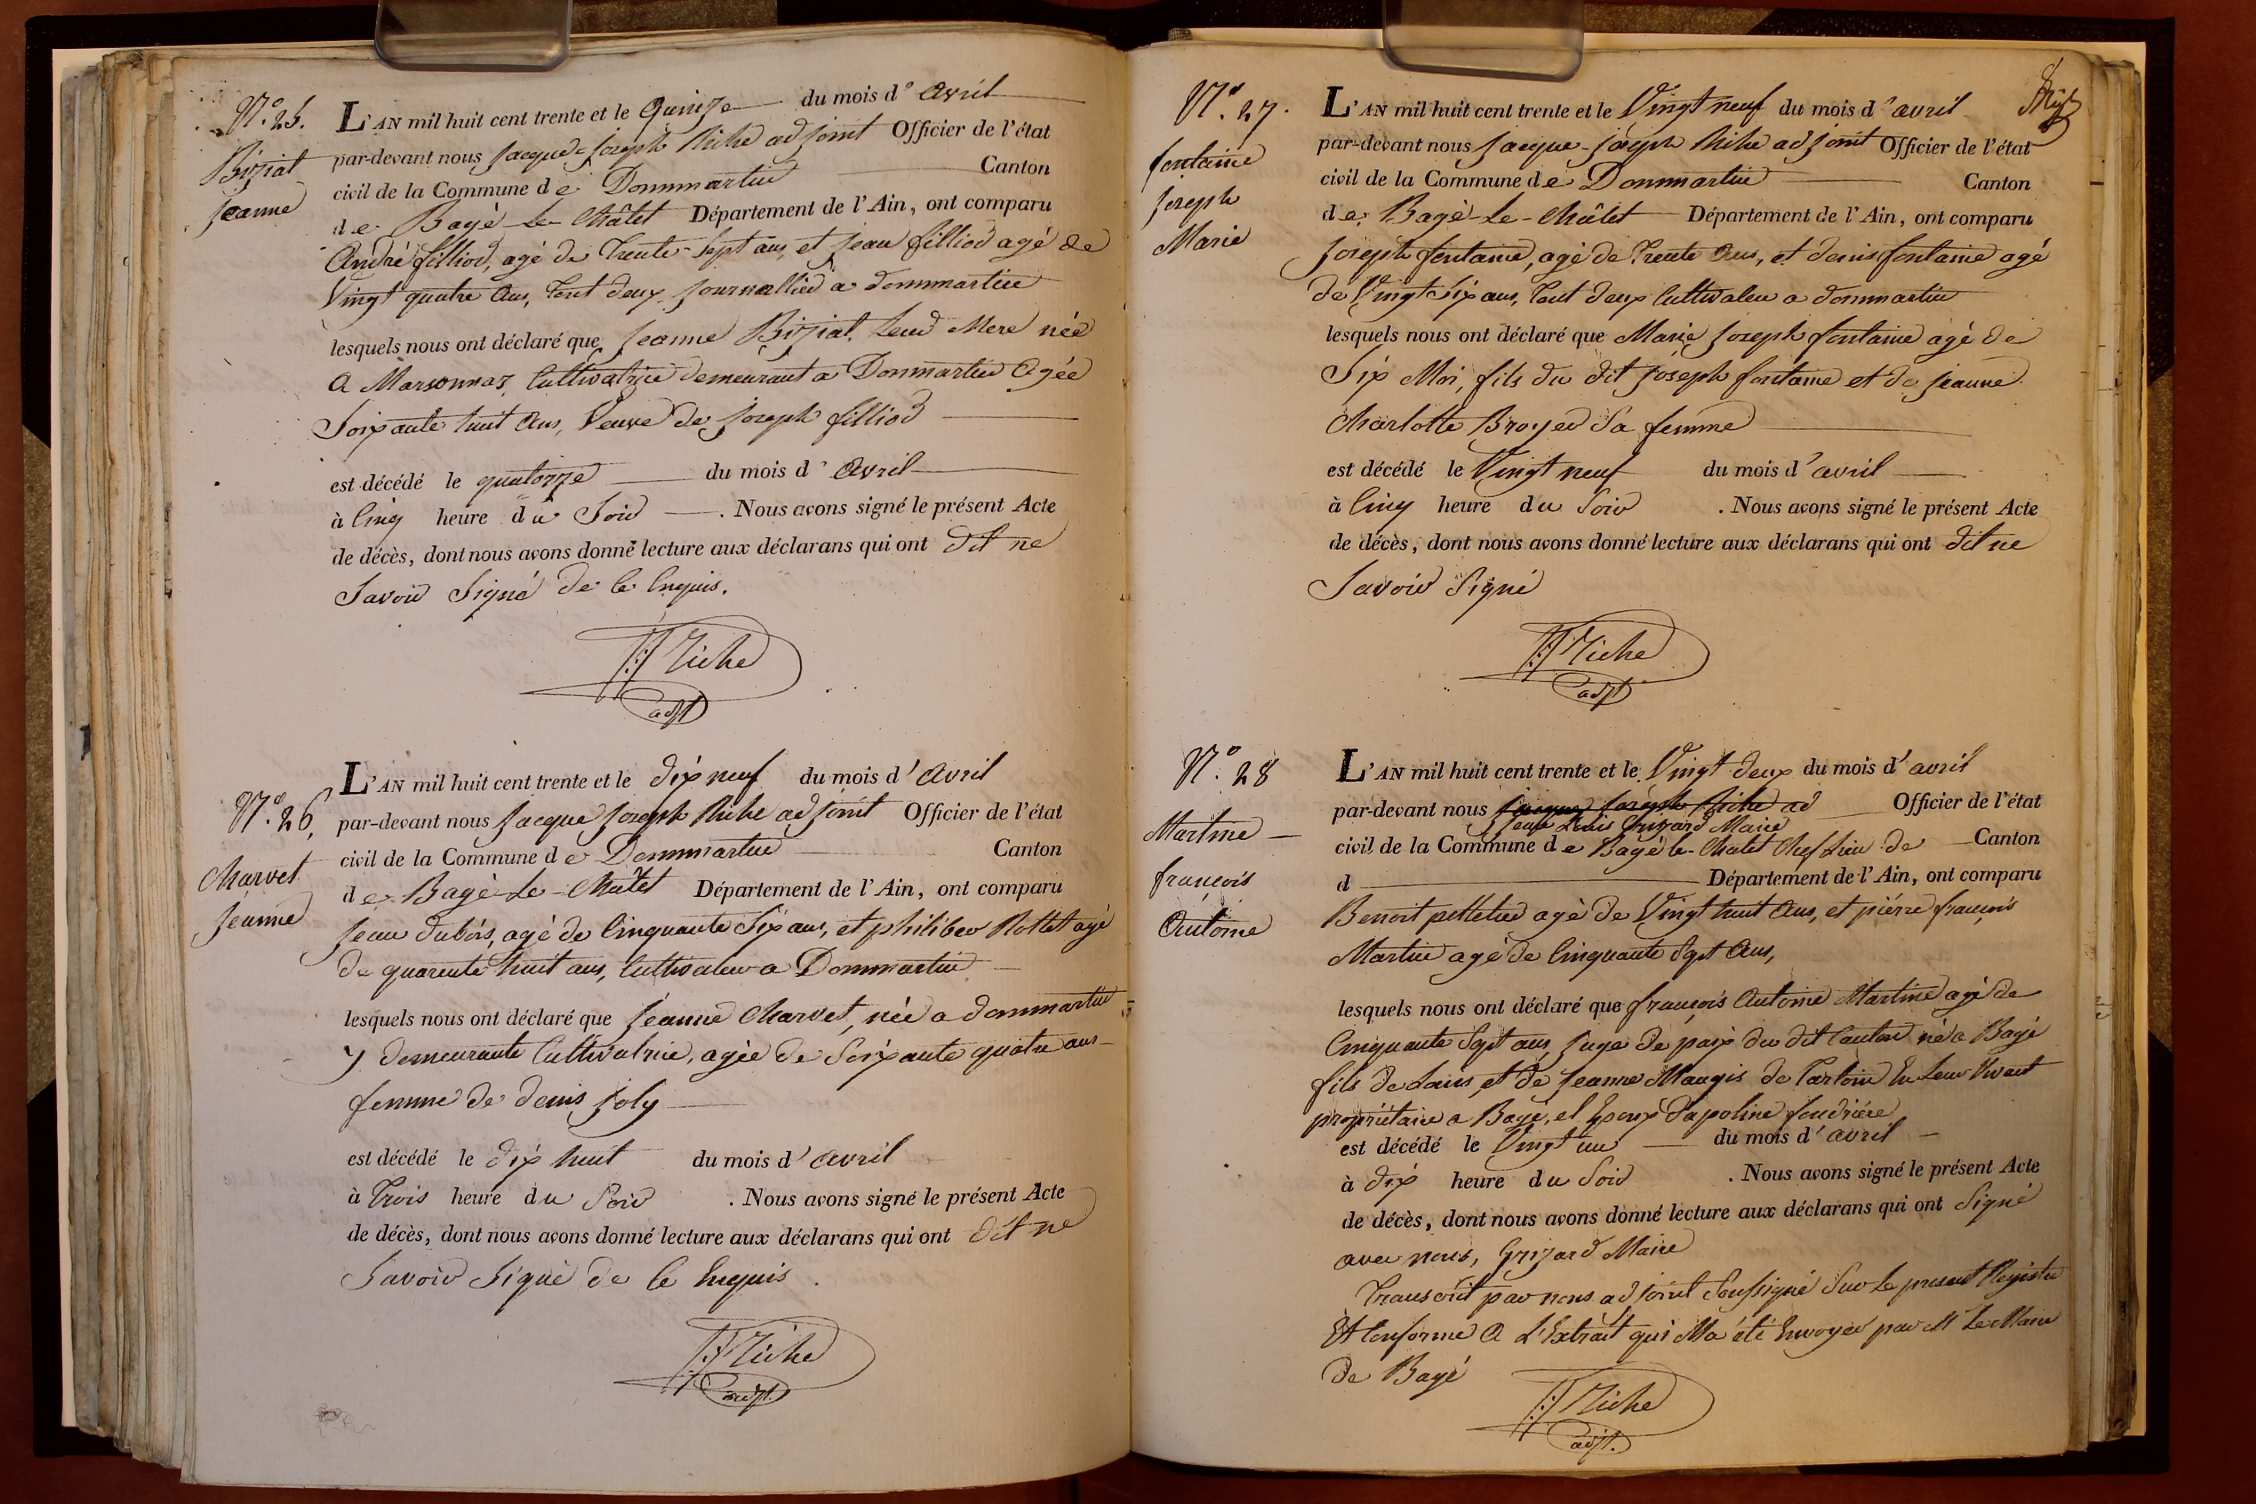 N.° 25.
Biziat
Jeanne
L'AN mil huit cent trente et le Quinze du mois d' avril
par-devant nous Jacque Joseph Riche adjoint Officier de l'état
civil de la Commune de Dommartin Canton
de Bagé le Châtel Département de l'Ain, ont comparu
André filliod, agé de trente Sept ans, et Jean filliod agé de
Vingt quatre ans, tout deux Journallier a dommartin
lesquels nous ont déclaré que Jeanne Biziat, Leur Mere née
a Marsonnaz, Cultivatrice demeurant a Dommartin agée
Soixante huit ans, Veuve de Joseph filliod
est décédé le quatorze du mois d' avril
à Cinq heure du Soir . Nous avons signé le présent Acte
de décès, dont nous avons donné lecture aux déclarans qui ont dit ne
Savoir Signé de ce Enquis.
JJ Riche
adjt
N.° 26.
Charvet
Jeanne
L'AN mil huit cent trente et le dix neuf du mois d' avril
par-devant nous Jacque Joseph Riche adjoint Officier de l'état
civil de la Commune de Dommartin Canton
de Bagé Le Châtel Département de l'Ain, ont comparu
Jean dubois, agé de Cinquante Six ans, et philiber Rottet agé
de quarente huit ans, Cultivateur a Dommartin
lesquels nous ont déclaré que Jeanne Charvet, née a dommartin
y demeurante Cultivatrice, agée de Soixante quatre ans
femme de denis Joly
est décédé le dix huit du mois d' avril
à Trois heure du Soir . Nous avons signé le présent Acte
de décès, dont nous avons donné lecture aux déclarans qui ont dit ne
Savoir Signé de ce Enquis.
JJ Riche
adjt.
N.° 27.
fontaine
Joseph
Marie
L'AN mil huit cent trente et le Vingt neuf du mois d' avril
par-devant nous Jacque-Joseph Riche adjoint Officier de l'état
civil de la Commune de Dommartin Canton
de Bagé-Le-Châtel Département de l'Ain, ont comparu
Joseph fontaine, agé de Trente ans, et denis fontaine agé
de Vingt Six ans, tout deux Cultivateur a dommartin
lesquels nous ont déclaré que Marie Joseph fontaine agé de
Six Moi, fils du dit Joseph fontaine et de Jeanne
Charlotte Broyer Sa femme
est décédé le Vingt neuf du mois d' avril
à Cinq heure du Soir . Nous avons signé le présent Acte
de décès, dont nous avons donné lecture aux déclarans qui ont dit ne
Savoir Signé
JJ Riche
adjt
N.° 28
Martine
françois
Antoine
L'AN mil huit cent trente et le Vingt deux du mois d' avril
par-devant nous Jacque Joseph Riche ad Officier de l'état
Jean Louis Grizard Maire
civil de la Commune de Bagé le-Chatel Chef Lieu de Canton
d Département de l'Ain, ont comparu
Benoit pelletier agé de Vingt huit ans, et piérre françois
Martin agé de Cinquante Sept ans,
lesquels nous ont déclaré que françois Antoine Martine agé de
Cinquante Sept ans, Juge de paix du dit Canton né a Bagé
fils de Louis, et de Jeanne Maugis de Tartoin En Leur Vivant
propriétaire a Bagé, et Epoux d'apoline foudriére
est décédé le Vingt un du mois d' avril
à dix heure du Soir . Nous avons signé le présent Acte
de décès, dont nous avons donné lecture aux déclarans qui ont Signé
avec nous, Grizard Maire
Transcrit par nous adjoint Soussigné Sur Le present Régistre
Et Conforme a L'Extrait qui Ma été Envoyer par Mr Le Maire
de Bagé
JJ Riche
adjt.